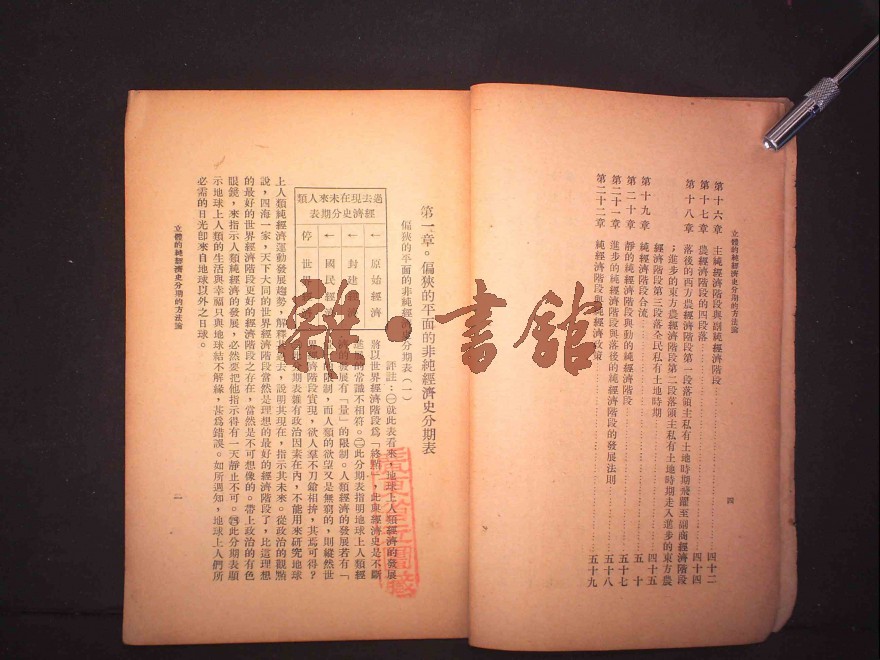 立體的純經濟史分期的方法論
四
第十六章 主純經濟階段與副純經濟階段……四十二
第十七章 農經濟階段的四段落……四十四
第十八章 落後的西方農經濟階段第一段落領主私有土地時期飛躍至副商經濟階段
；進步的東方農經濟階段第二段落領主私有土地時期走入進步的東方農
經濟階段第三段落全民私有土地時期……四十五
第十九章 純經濟階段合流……五十
第二十章 靜的純經濟階段與動的純經濟階段……五十七
第二十一章 進步的純經濟階段與落後的純經濟階段的發展法則……五十八
第二十二章 純經濟階段與純經濟政策……五十九
第一章。偏狹的平面的非純經濟史分期表
偏狹的平面的非純經濟分期表（一）
過去現在未來人類
經濟史分期表
← 原始經濟
← 封建
← 國民經
停 世界
評註：㈠就此表看來，地球上人類經濟的發展
將以世界經濟階段爲「終點」，此與經濟史是不斷
進的常識不相符。㈡此分期表指明地球上人類經
的發展有「量」的限制。人類經濟的發展若有「
限制，而人類的欲望又是無窮的，則縱然世
界經濟階段實現，欲人羣不刀鎗相拚，其焉可得？
期表雖有政治因素在內，不能用來研究地球
上人類純經濟運動發展趨勢，解釋去，說明其現在，指示其未來。從政治的觀點
說，四海一家，天下大同的世界經濟階段當然是理想的最好的經濟階段了，比這理想
的最好的世界經濟階段更好的經濟階段之存在，當然是不可想像的。帶上政治的有色
眼鏡，來指示人類純經濟的發展，必然要把他指示得有一天靜止不可。㈣此分期表顯
示地球上人類的生活與幸福只與地球結不解緣，甚爲錯誤。如所週知，地球上人們所
必需的日光卽來自地球以外之日球。
立體的純經濟史分期的方法論
一
雜·書館